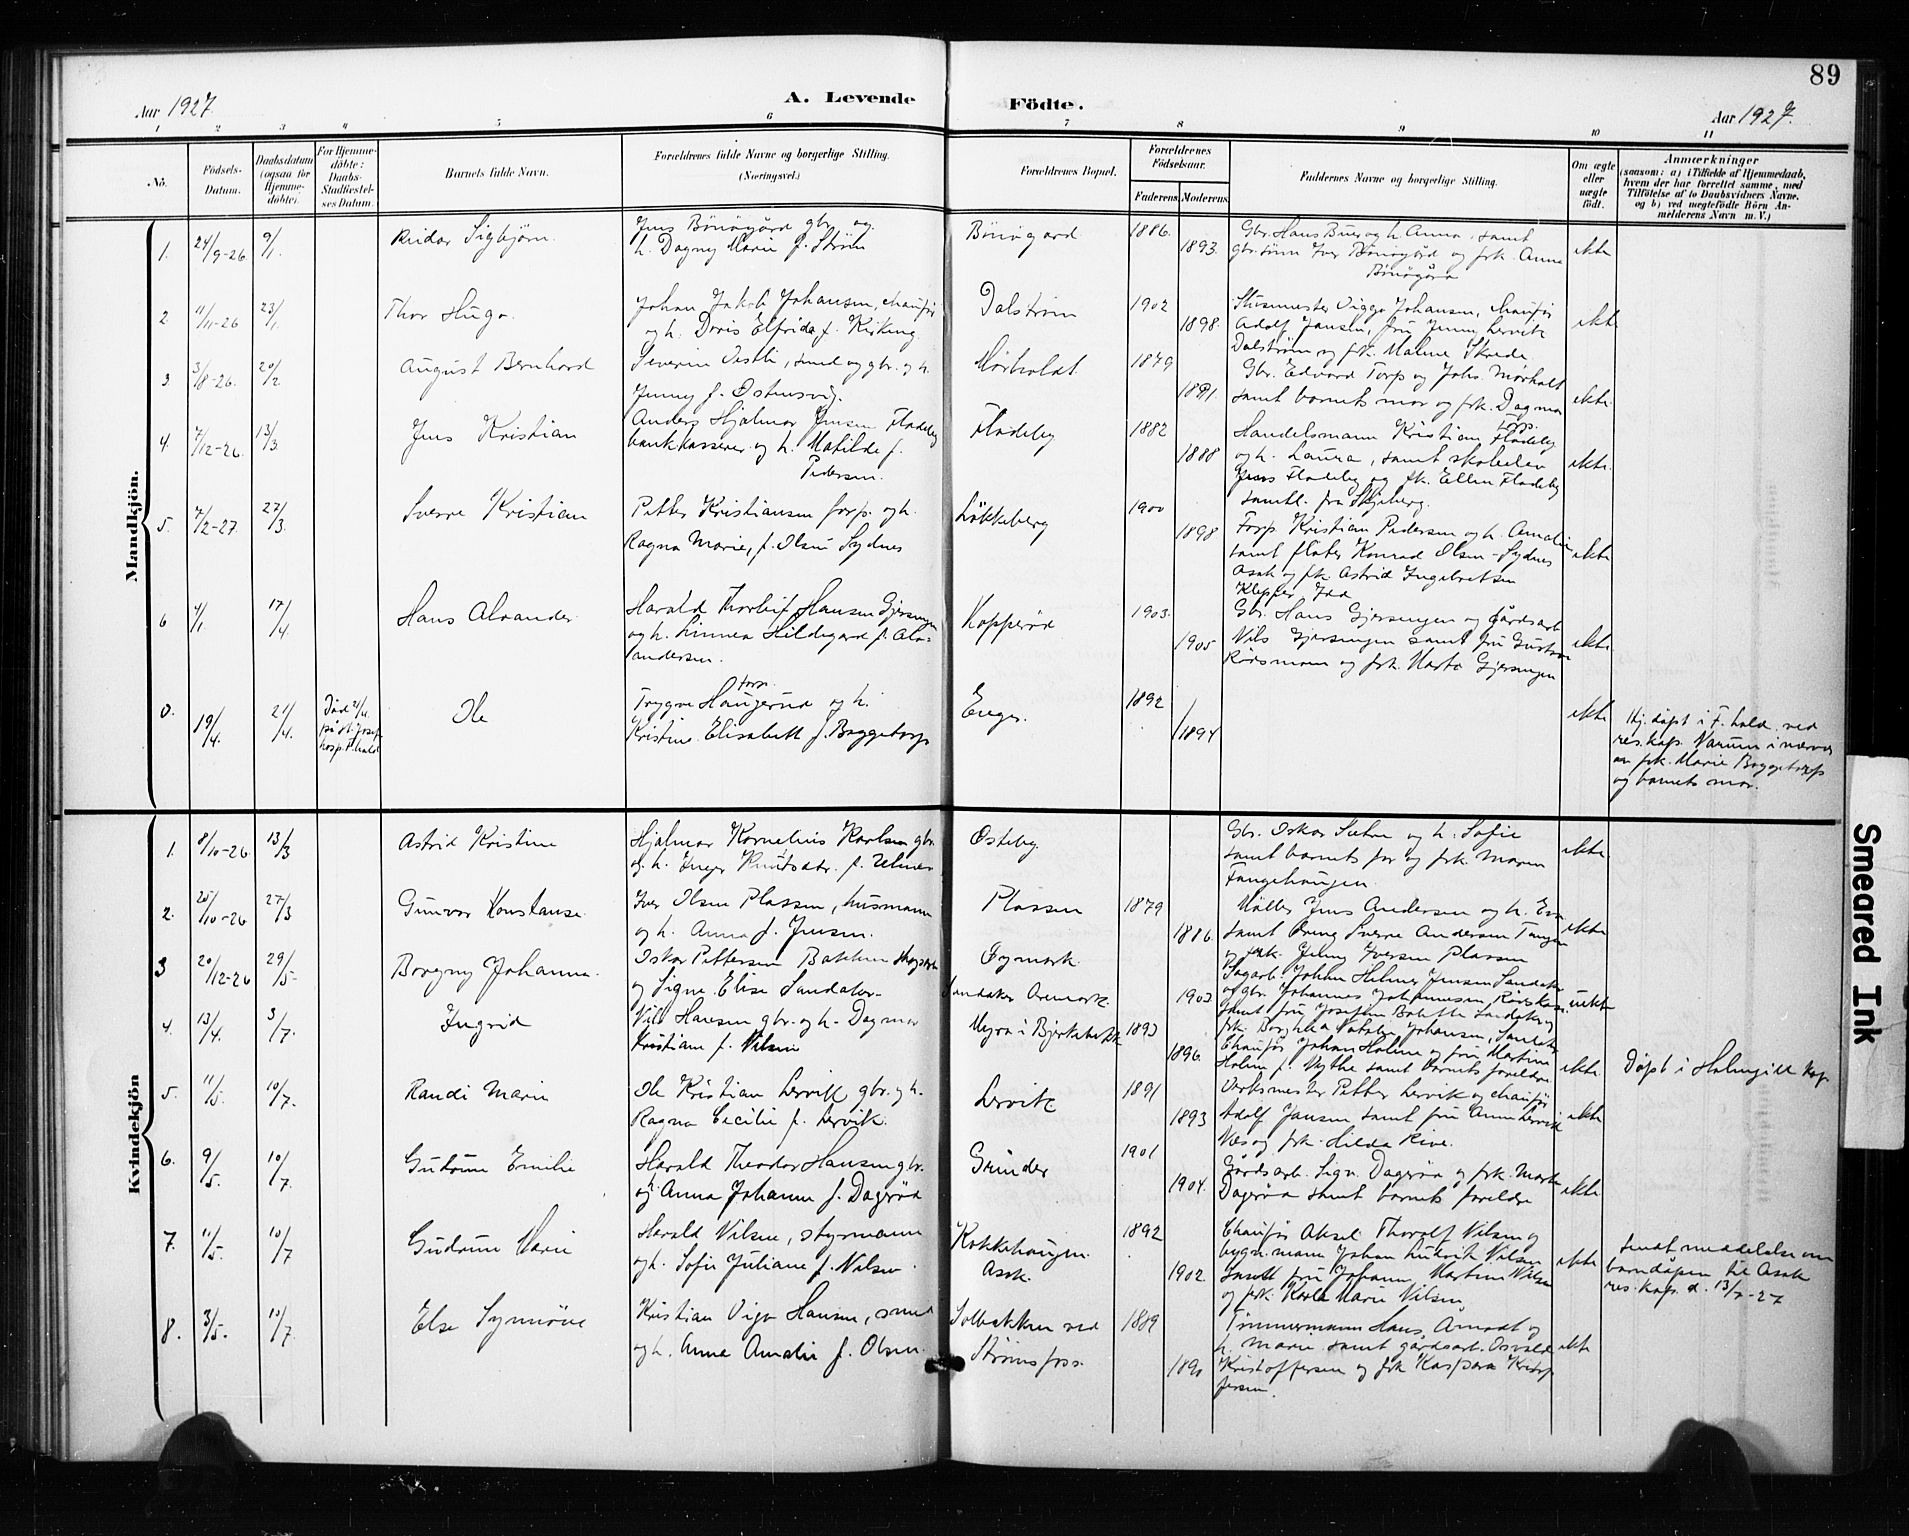 89
Aar 1927.
A. Levende Födte.
Aar 1927.
1 2 3 4 5 6 7 8 9 10 11
No.
Födsels-Datum.
Daabsdatum (ogsaa for Hjemme-döbte).
For Hjemme-döbte: Daabs-Stadfæstel-ses Datum.
Barnets fulde Navn.
Forældrenes fulde Navne og borgerlige Stilling. (Næringsvei.)
Forældrenes Bopæl.
Forældrenes Födselsaar.
Faderens Moderens
Faddernes Navne og borgerlige Stilling.
Om ægte eller uægte födt.
Anmærkninger
(saasom: a) i Tilfælde af Hjemmedaab, hvem der har forrettet samme, med Tilföielse af to Daabsvidners Navne. og b) ved uægtefödte Börn An-melderens Navn m. V.)
Mandkjön.
1. 24/9-26 9/1. Reidar Sigbjørn.
Jens Bønøgård gbr. og
h. Dagny Marie f. Strøm
Bønøgård 1886. 1893.
Gbr. Hans Buer og h. Anna, samt
gbr. sønn Iver Bønøgård og frk. Anna
Bønøgård
ekte
2 11/11-26 23/1. Thor Hugo.
Johan Jakob Johansen, chaufør
og h. Doris Elfrida f. Kirking
Dalstrøm 1902 1898.
Viggo Johansen, chaufør
Adolf Jansen, fru Lervik
Dalstrøm og frk. Malme Skrede
ekte
3 3/8-26. 20/2 August Bernhard
Severin Vestli, smed og gbr. og h.
Jenny f. Østensvig.
Mørholdt. 1879 1891.
Gbr. Edvard Torp og Johs. Mørholt
samt barnets mor og frk. Dagmar
Torp.
ekte.
4 7/12-26. 13/3. Jens Kristian
Anders Hjalmar Jensen Fladeby
bankkasserer og h. Matilde f.
Pedersen.
Fladeby 1882 1888
Handelsmann Kristian Fladeby
og h. Laura, samt skoleelev
Jens Fladeby og frk. Ellen Fladeby
samtl. fra Skjeberg.
ekte.
5. 7/2-27 27/3. Sverre Kristian
Petter Kristiansen forp. og h.
Ragna Marie, f. Olsen Sydnes
Løkkeberg 1900 1898
Forp. Kristian Pedersen og h. Amalie
samt fløter Konrad Olsen-Sydnes
Asak og frk. Astrid Ingebretsen
Klepper, Idd
ekte
6 4/1. 17/4 Hans Alvander
Harald Thorleif Hansen Gjersingen
og h. Linnea Hildegard f. Alv-
andersen.
Kopperød 1903. 1905
Gbr. Hans Gjersingen og gårdsarb.
Nils Gjersingen samt fru Gustava
Rødsmoen og frk. Marta Gjersingen
ekte
0. 19/4. 21/4. Død 21/4. på St. Josef hosp. F.hald
Ole
Trygve Haugerud forp. og h.
Kristine Elisabeth f. Baggetorp
Enger. 1892 1894
ekte
Hj. døpt i F.hald ved
res. kap. Narum i nærvær
av frk. Marie Baggetorp
og barnets mor.
Kvindekjön
1. 8/10-26 13/3 Astrid Kristine
Hjalmar Kornelius Karlsen gbr.
og h. Inger Knutsdtr. f.
Østeby.
Gbr. Oskar Sæter og h. Sofie
samt barnets far og frk. Maren
Tangehaugen.
ekte
2. 25/10-26 27/3 Gunvor Konstanse
Iver Olsen Plassen, husmann
og h. Anna f. Jensen.
Plassen 1879 1886.
Møller Jens Andersen og h. Eva
samt dreng Sverre Andersen Tangen
og frk. Jenny Iversen Plassen
ekte
3 20/12-26 29/5- Borgny Johanna.
Oskar Pettersen Bakken skogsarb.
og Signe Elise Sandaker-
Fymork.
Sandaker Aremark. 1903
Sagarb. Johan Helmer Jensen Sandaker
og gbr. Johannes Johannesen,
samt fru Josefine Bolette Sandaker og
frk. Borghild Johansen, Sandaker
uekte
4. 13/4. 3/7. Ingrid
Nils Hansen gbr. og h. Dagmar
Kristiane f. Nilsen
Myra i Bjerkebekk 1893 1896.
Chaufør Johan Holme og fru Martine
Holme f. Nythe samt barnets foreldre
ekte
Døpt i Holmgill kap.
5. 11/5. 10/7. Randi Marie
Ole Kristian Lervik gbr. og h.
Ragna Cecilie f. Lervik.
Lervik 1891 1893
Verksmester Petter Lervik og chaufør
Adolf Jansen samt fru Anna Lervik
Næs og frk. Hilda Rive.
ekte
6. 9/5. 10/7. Gudrun Emilie
Harald Theodor Hansen gbr.
og Anna Johanne f. Dagrød
Grinder 1901 1904.
Gårdsarb. Sigv. Dagrød og frk. Marta
Dagrød samt barnets foreldre
ekte
7. 11/5. 10/7 Gudrun Marie
Harald Nilsen, styrmann
og h. Sofie Juliane f. Nilsen.
Kokkehaugen.
Asak. 1892 1902
Chaufør Aksel Thoralf Nilsen og
bygn.mann Johan Ludvik Nilsen
samt fru Johanne Martine Nilsen
og frk. Karla Marie Nilsen
ekte
Sendt meddelelse om
barndåpen til Asak
res. kap. d. 13/7-27
8. 3/5. 10/7. Else Synnøve
Kristian Vigo Hansen, smed
og h. Anna Amalie f. Olsen.
Solbakken ved
Strømsfoss. 1889 1890
Tømmermann Hans Åmodt og
h. Marie samt gårdsarb. Osvald
Kristoffersen og frk. Kaspara Kristof-
fersen.
ekte
Smeared Ink